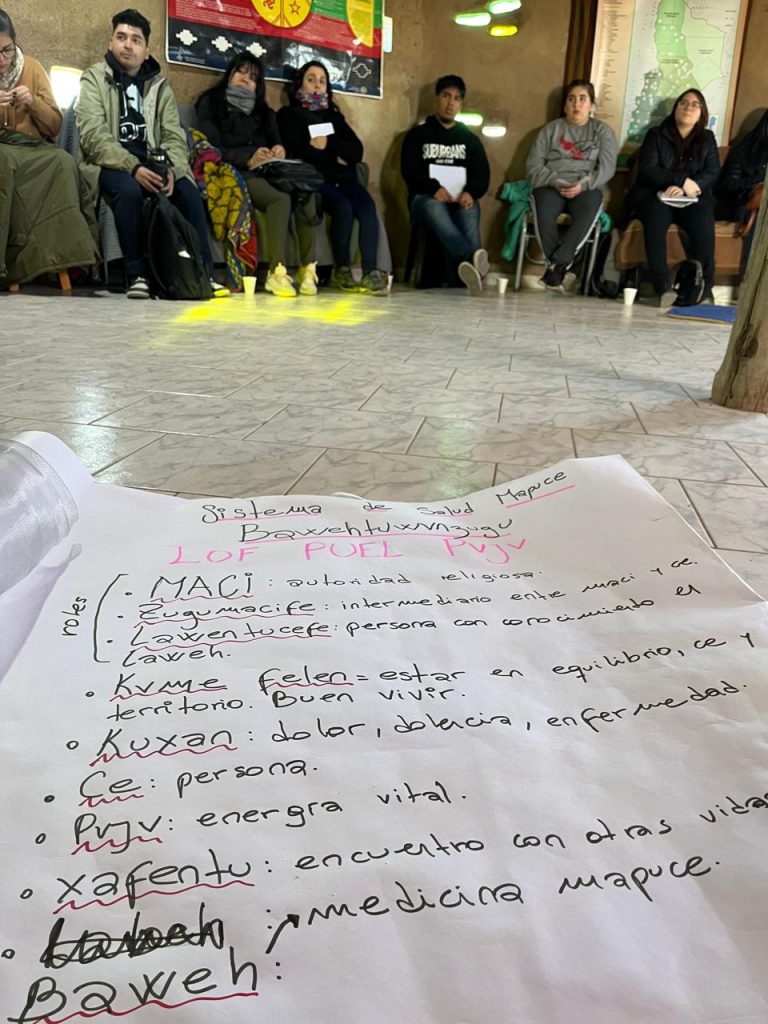 SUBURBANS
Sistema de Salud Mapuce
Bawehtuwvnzugu
LOF PUEL PVJV
roles
• MACi: autoridad religiosa.
• Zugumacife: intermediario entre maci y ce.
• Lawentucefe: persona con conocimiento el
laweh.
• Kvme felen = estar en equilibrio, ce y
territorio. Buen vivir.
• Kuxan: dolor, dolencia, enfermedad.
• Ce: persona.
• Pvjv: energia vital.
• xafentu: encuentro con otras vidas
• : medicina mapuce.
Baweh: